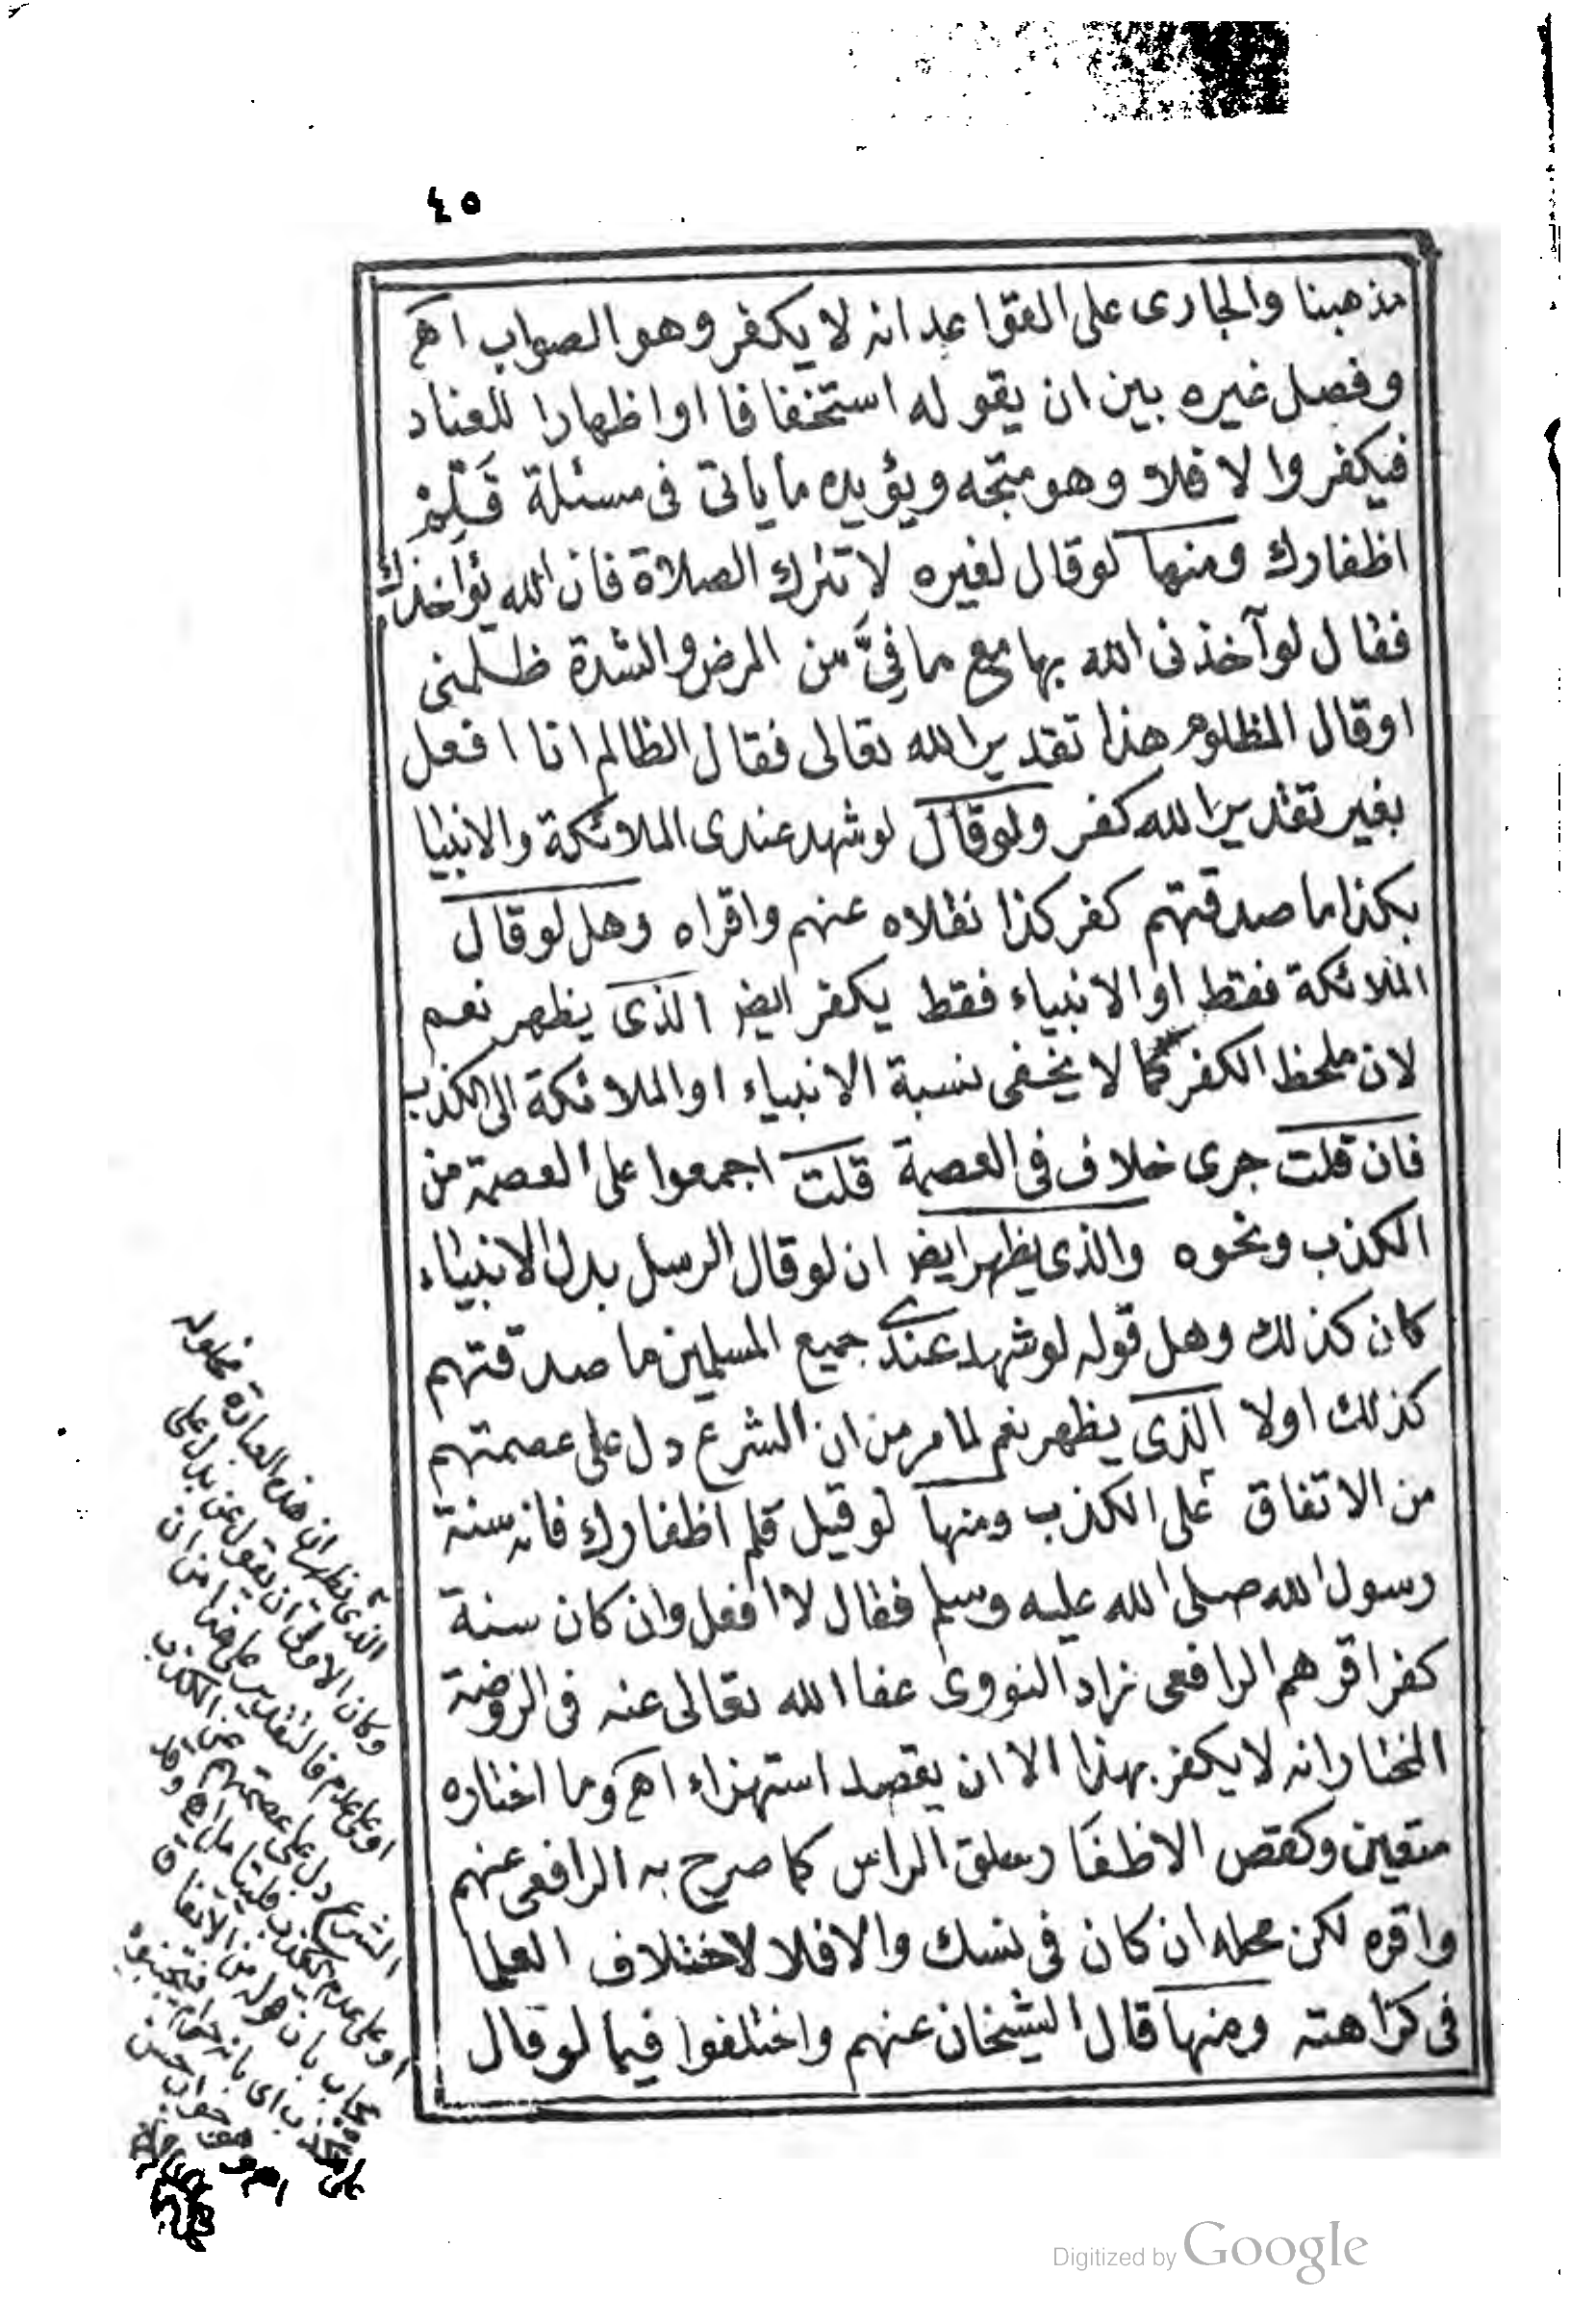 ٤٥
مذهبنا والجارى على القواعد انه لا يكفر وهو الصواب اهـ
وفصل غيره بين ان يقوله استخفافا او اظهارا للعناد
فيكفر والا فلا وهو متجه ويؤيده ما ياتى فى مسئلة قَلِّمْ
اظفارك ومنها لو قال لغيره لا تترك الصلاة فان الله يؤاخذك
فقال لو آخذنى الله بها مع ما فِيَّ من المرض والشدة ظلمنى
او قال المظلوم هذا تقدير الله تعالى فقال الظالم انا افعل
بغير تقدير الله كفر ولو قال لو شهد عندى الملائكة والانبيا
بكذا ما صدقتهم كفر كذا نقلاه عنهم واقراه وهل لو قال
الملائكة فقط او الانبياء فقط يكفر ايض الذى يظهر نعم
لان ملحظ الكفر كما لا يخفى نسبة الانبياء او الملائكة الى الكذب
فان قلت جرى خلاف فى العصمة قلت اجمعوا على العصمة من
الكذب ونحوه والذى يظهر ايض ان لو قال الرسل بدل الانبياء
كان كذلك وهل قوله لو شهد عندى جميع المسلمين ما صدقتهم
كذلك اولا الذى يظهر نعم لما مر من ان الشرع دل على عصمتهم
من الاتفاق على الكذب ومنها لو قيل قلم اظفارك فانه سنة
رسول الله صلى الله عليه وسلم فقال لا افعل وان كان سنة
كفر اقرهم الرافعى زاد النووى عفا الله تعالى عنه فى الروضة
المختار انه لا يكفر بهذا الا ان يقصد استهزاء اهـ وما اختاره
متعين وكقص الاظفا ر حلق الراس كما صرح به الرافعى عنهم
واقره لكن محله ان كان فى نسك والا فلا لاختلاف العلما
فى كراهته ومنها قال الشيخان عنهم واختلفوا فيما لو قال
الذى يظهر ان هذه العبارة محلوله
وكان الاولى ان يقول عن بدل على
او على عدم فالتقدير على هذا من ان
الشرع دل على عصمتهم عن الكذب
او على عدم الكذب فليتامل اهـ وقد
يجاب بان قوله من الاتفاق
Digitized by Google